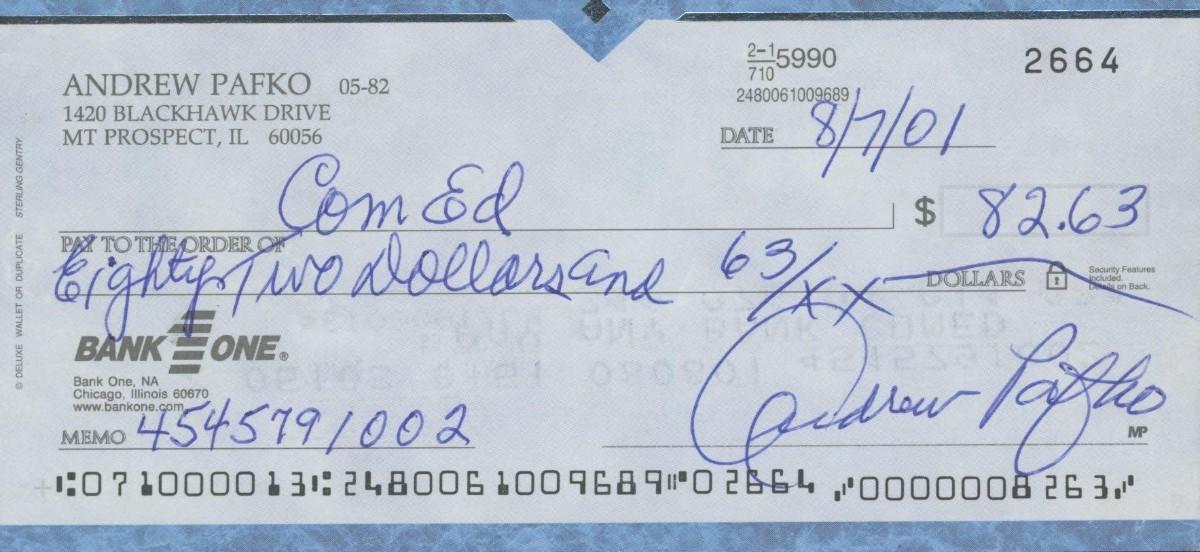 2-1 5990
710
2664
ANDREW PAFKO 05-82
2480061009689
1420 BLACKHAWK DRIVE
DATE 8/7/01
MT PROSPECT, IL 60056
Com Ed
$ 82.63
PAY TO THE ORDER OF
Eighty Two Dollars and 63/xx DOLLARS
Security Features
Included.
Details on Back.
BANK ONE®
Bank One, NA
Chicago, Illinois 60670
www.bankone.com
Andrew Pafko
MEMO 4545791002
MP
⑆071000013⑆2480061009689⑈02664 ⑇0000008263⑇
© DELUXE WALLET OR DUPLICATE STERLING GENTRY